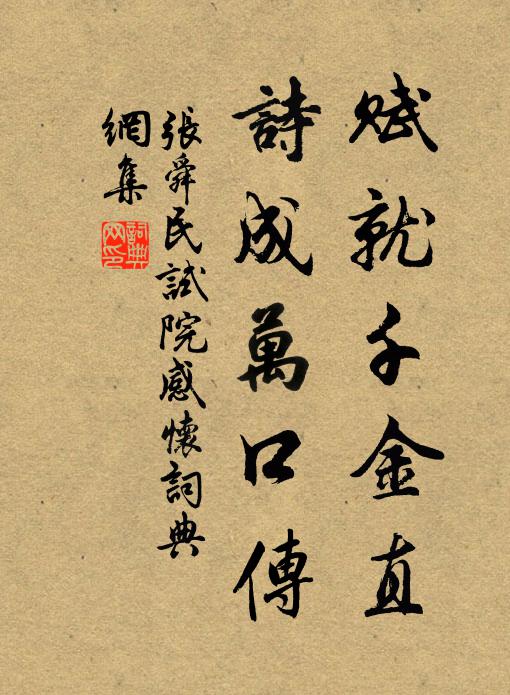 赋就千金直
詩成萬口傳
張舜民試院感懷詞典
網集
詞典
网印